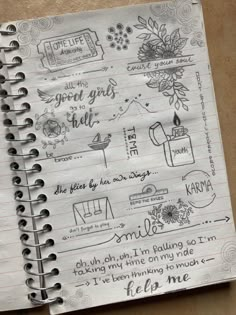 ONE LIFE
cause your soul
all the
good girls
go to
hell
TIME
be
YOUTH
She flies by her own wings.
KARMA
don't forget to play
smile
oh, uh, oh, uh, I'm falling so I'm
taking my time on my ride
I've been thinking to much
help me